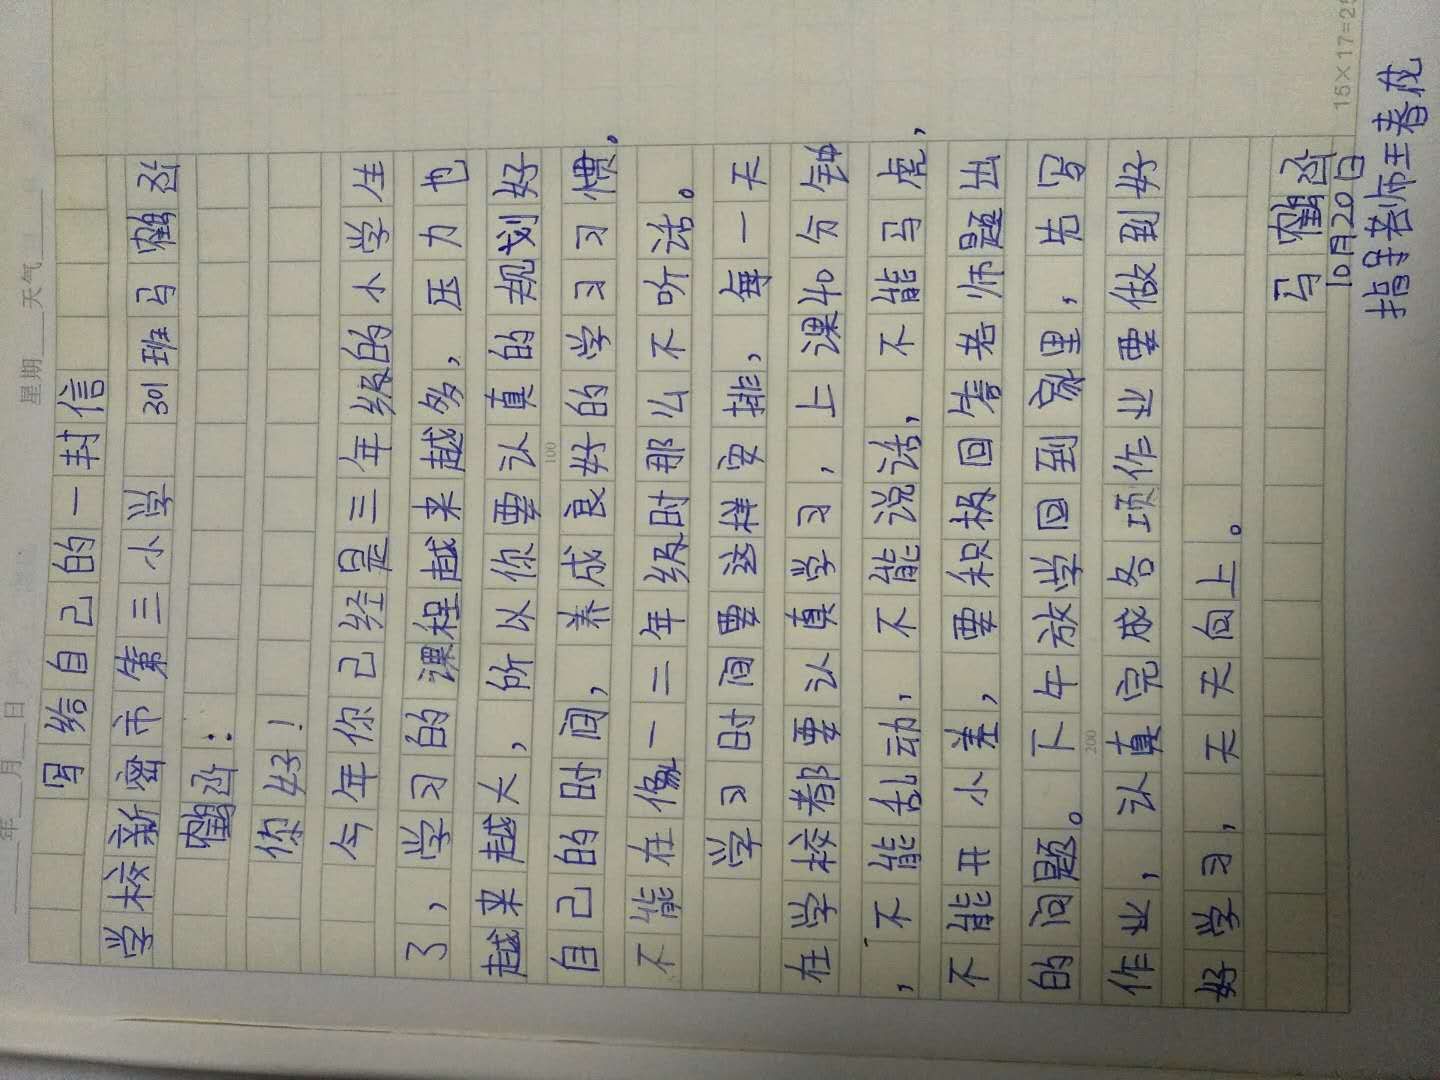 年 月 日 星期 天气
写给自己的一封信
学校新密市第三小学 301班马鹤
鹤:
你好!
今年你已经是三年级的小学生
了,学习的课程越来越多,压力也
越来越大,所以你要认真的规划好
自己的时间,养成良好的学习习惯。
不能在像一二年级时那么不听话。
学习时间要这样安排,每一天
在学校都要认真学习,上课40分钟
,不能乱动,不能说话,不能马虎,
不能开小差,要积极回答老师题出
的问题。下午放学回到家里,先写
作业,认真完成各项作业要做到好
好学习,天天向上。
马鹤
10月20日
指导老师王春
100
200
15×17=25